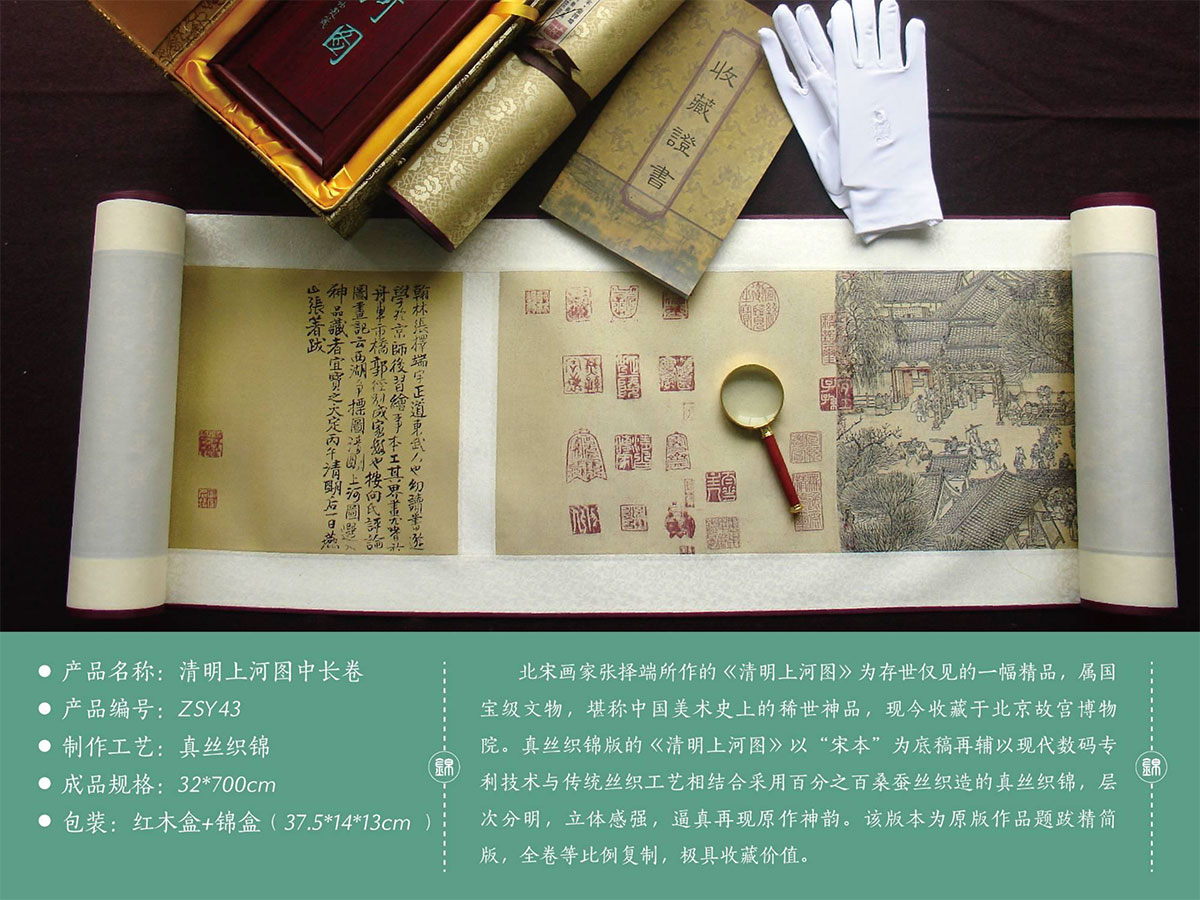 收藏證書
翰林張擇端字正道東武人也幼讀書遊
學於京師後習繪事本工其界畫尤嗜於
舟車市橋郭徑別成家數也按向氏評論
圖畫記云西湖爭標圖清明上河圖選入
神品藏者宜寶之大定丙午清明后一日燕
山張著跋
● 产品名称：清明上河图中长卷
● 产品编号：ZSY43
● 制作工艺：真丝织锦
● 成品规格：32*700cm
● 包装：红木盒+锦盒（37.5*14*13cm ）
錦
北宋画家张择端所作的《清明上河图》为存世仅见的一幅精品，属国
宝级文物，堪称中国美术史上的稀世神品，现今收藏于北京故宫博物
院。真丝织锦版的《清明上河图》以“宋本”为底稿再辅以现代数码专
利技术与传统丝织工艺相结合采用百分之百桑蚕丝织造的真丝织锦，层
次分明，立体感强，逼真再现原作神韵。该版本为原版作品题跋精简
版，全卷等比例复制，极具收藏价值。
錦